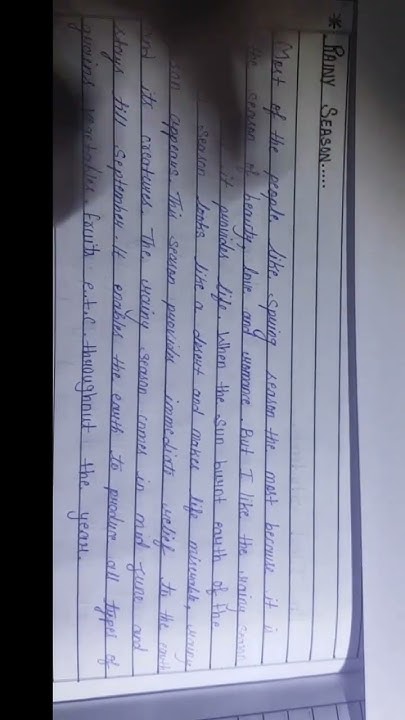 * RAINY SEASON.....
Most of the people like Spring season the most because it is
the season of beauty, love and romance. But I like the rainy season
it provides life. When the Sun burnt earth of the
season looks like a desert and makes life miserable, rainy
son appears. This season provides immediate relief to the earth
and its creatures. The rainy season comes in mid June and
stays till September. It enables the earth to produce all types of
grains vegetables, fruits e.t.c. throughout the year.